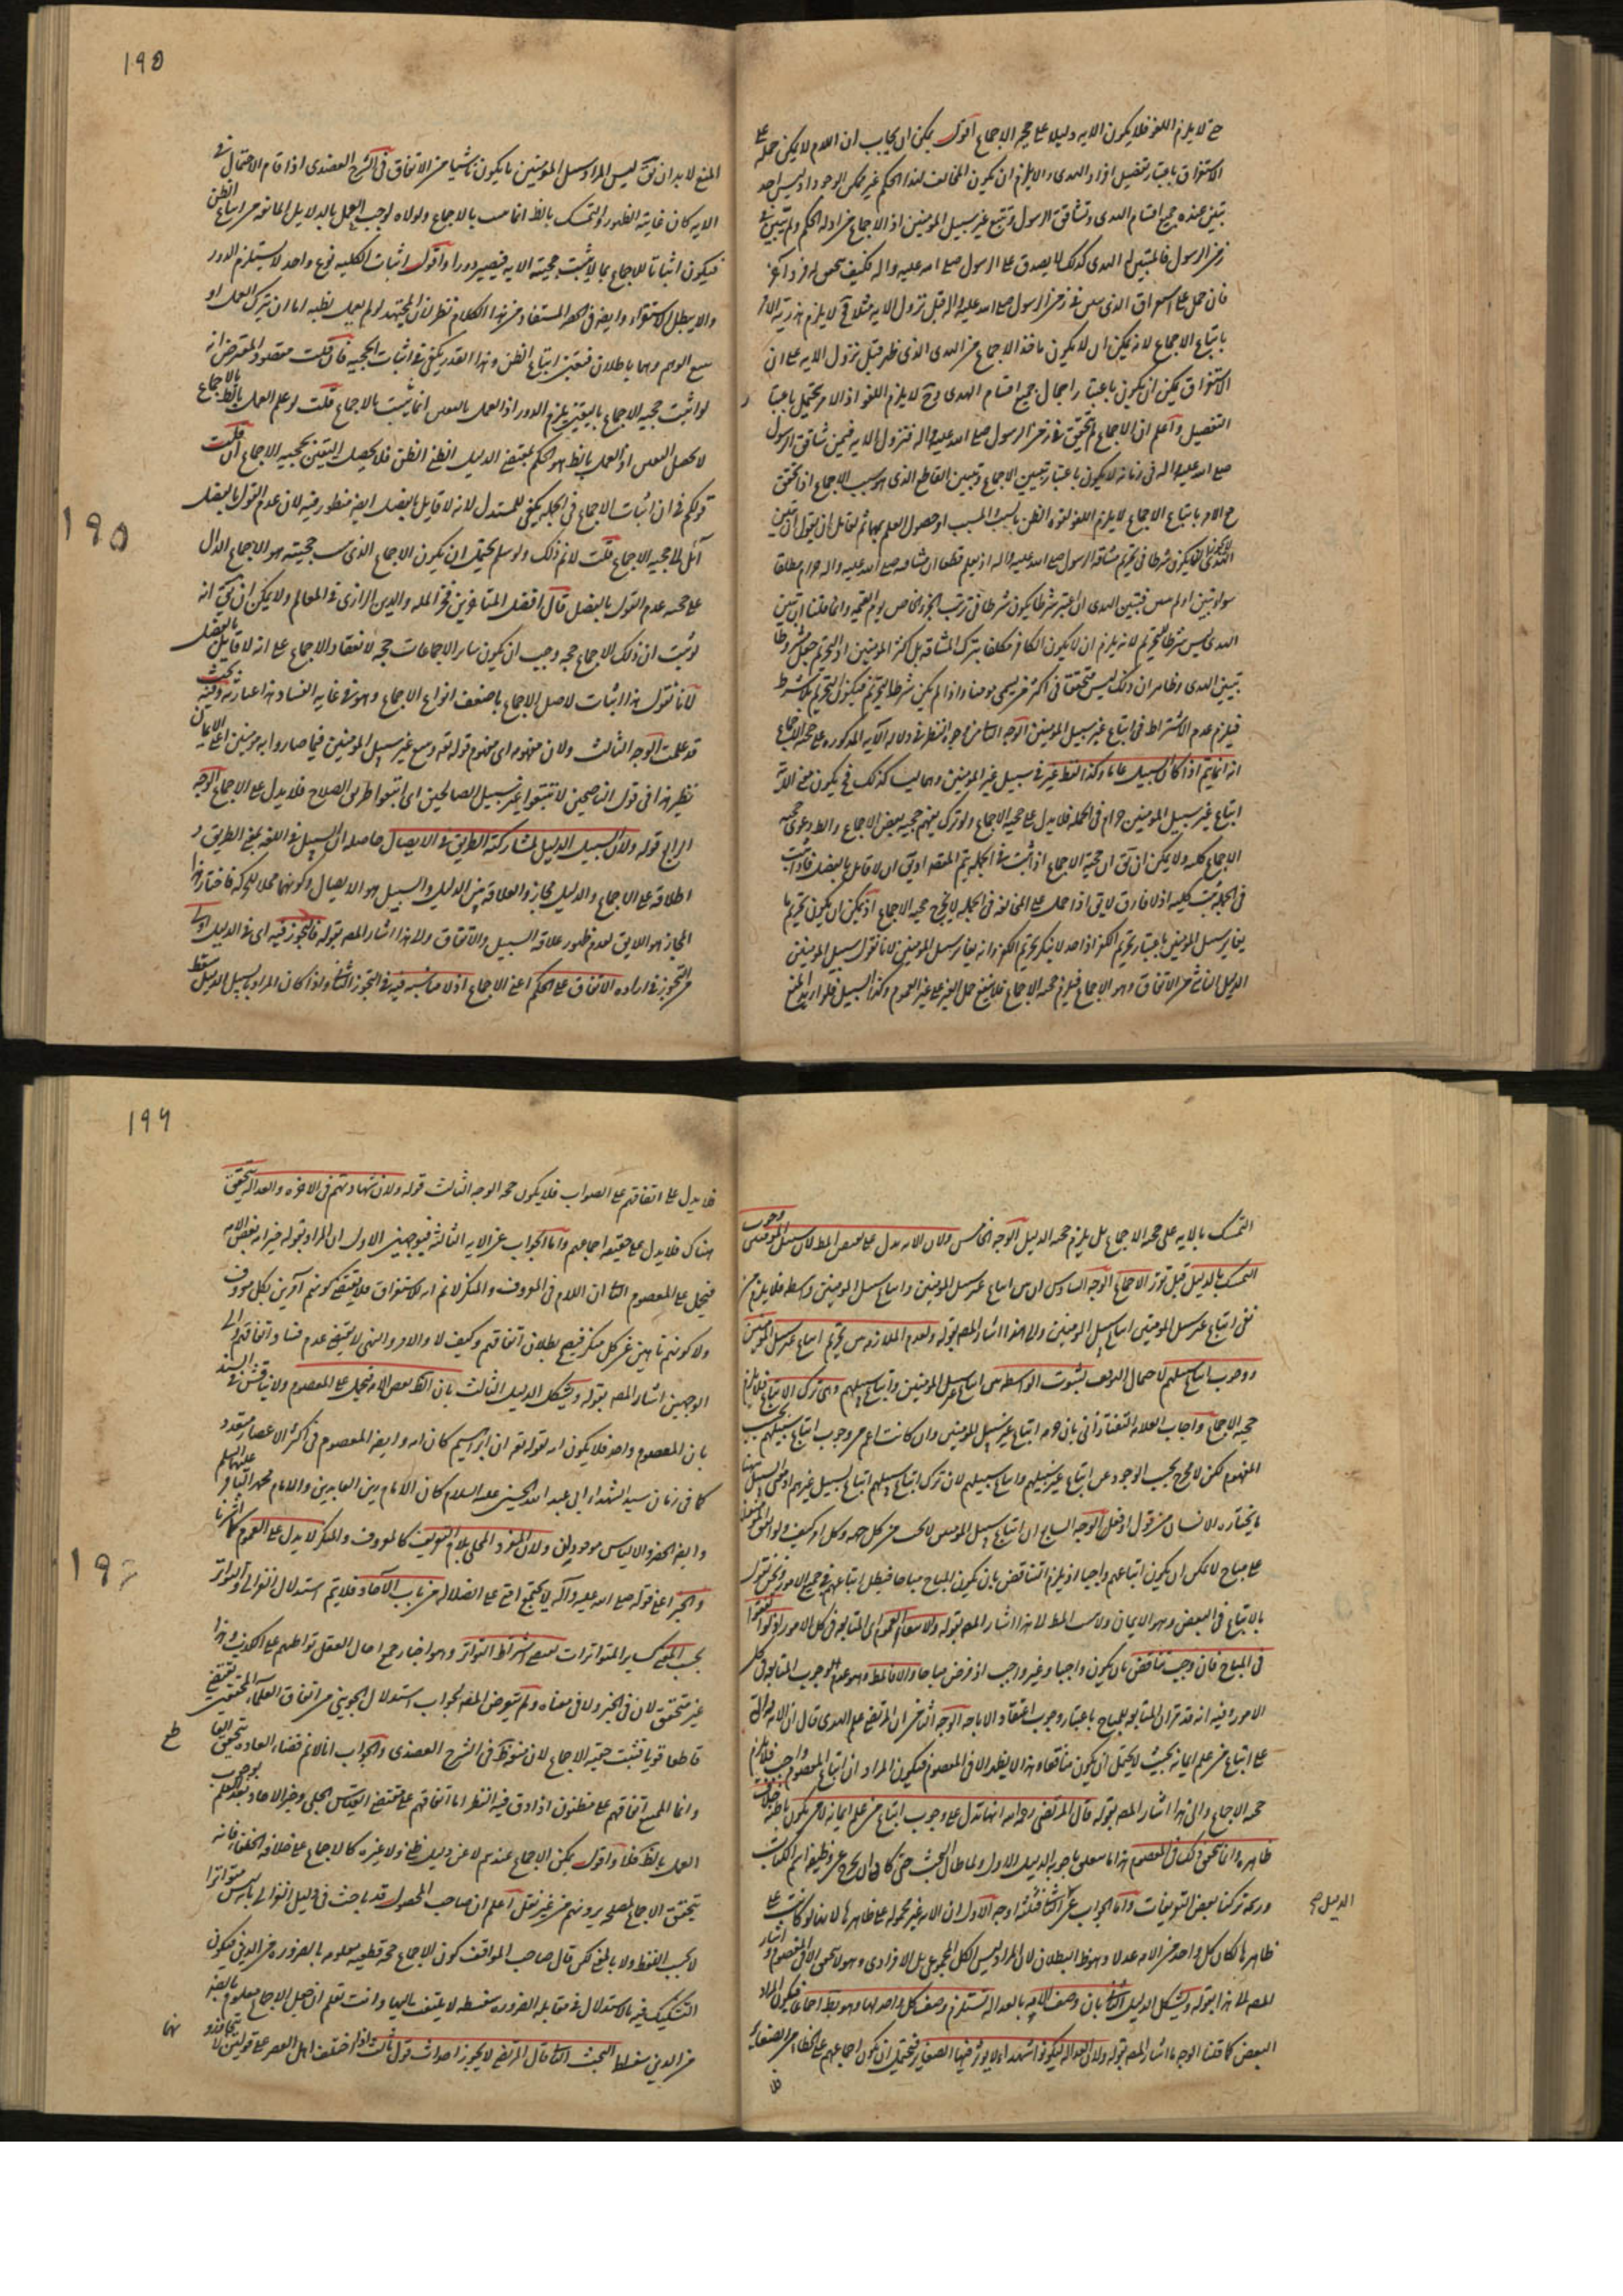 ح لا يلزم اللغو فلا يكون الايه دليلا على حجية الاجماع اقول يمكن ان يجاب ان اللام لا يمكن حمله على
الاستغراق باعتبار تفصيل افراد الهدى والا يلزم ان يكون المخالف لهذا الحكم غير ممكن الوجود اذ ليس احد
تبين عنده جميع اقسام الهدى وتشاقق الرسول وتتبع غير سبيل المؤمنين اذ الاجماع من ادلة الحكم ولم يتبين في
زمن الرسول فالمتبين له الهدى كذلك لا يصدق على الرسول صلى الله عليه واله فكيف يتحقق له فرد آخر
فان حمل على الذي في زمن الرسول صلى الله عليه واله قبل نزول الايه مثلا لا يلزم
باتباع الاجماع لانه يمكن ان لا يكون ماخذ الاجماع من الهدى الذي ظهر قبل نزول الايه على ان
الاستغراق يمكن ان يكون باعتبار اجمال جميع اقسام الهدى وح لا يلزم اللغو اذ الامر يحتمل باعتبار
التفصيل واعلم ان الاجماع لم يتحقق في زمن الرسول صلى الله عليه واله فنزول الايه فيمن شاقق الرسول
صلى الله عليه واله في زمانه لا يكون باعتبار تبيين الاجماع وتبيين القاطع الذي هو سبب الاجماع اذا تحقق
ح الامر باتباع الاجماع لا يلزم اللغو لقوة الظن بالسبب والمسبب او حصول العلم بهما ثم لقائل ان يقول ان تبين
الهدى لا يكون شرطا في تحريم مشاقة الرسول صلى الله عليه واله اذ يعلم قطعا ان مشاقته صلى الله عليه واله حرام مطلقا
سواء تبين او لم فتبين الهدى ان اعتبر شرطا يكون شرطا في ترتب الجزاء الخاص يوم القيمة وانما قلنا ان تبين
الهدى ليس شرطا للتحريم لانه يلزم ان لا يكون الكافر مكلفا بترك المشاقة بل اكثر المؤمنين اذ التحريم جعل مشروطا
بتبين الهدى وظاهر ان ذلك ليس متحققا في اكثر من يسمى مومنا واذا لم يكن شرطا لتحريم فيكون التحريم بلا شرط
فيلزم عدم الاشتراط في اتباع غير سبيل المؤمنين الوجه الثاني من وجوه النظر في دلالة الآية المذكورة على حجية الاجماع
انه انما يتم اذا كان سبيل عاما وكذا لفظ غير في سبيل غير المؤمنين وهما ليسا كذلك فح يكون معنى الآية
اتباع غير سبيل المؤمنين حرام في الجملة فلا يدل على حجية الاجماع ولو ترك يفهم حجية بعض الاجماع والمط دعوى حجية
الاجماع كله ولا يمكن ان يق ان حجية الاجماع اذا ثبت في الجملة يتم المقصد او يق ان لا قايل بالفصل فاذا ثبت
في الجملة ثبت كليه اذ لا فارق لا يق اذا حمل على المخالفة في الجملة لا يخرج حجية الاجماع اذ يمكن ان يكون تحريم ما
يغاير سبيل المؤمنين باعتبار تحريم الكفر اذ احد لا ينكر تحريم الكفر وانه يغاير سبيل المؤمنين لانا نقول سبيل المؤمنين
الدليل الناشى من الاتفاق وهو الاجماع فيلزم حجية الاجماع فلا ينفع حمل الغير على غير العموم وكذا السبيل فلو اريد المنع
المنع لابد ان يق ليس المراد سبيل المؤمنين ما يكون ناشيا من الاتفاق في الشرح العضدى اذا قام الاحتمال في
الايه كان غايته الظهور والتمسك بالظ انما يثبت بالاجماع ولولاه لوجب العمل بالدلايل المانعة من اتباع الظن
فيكون اثباتا للاجماع بما لا يثبت حجيته الا به فيصير دورا واقول اثبات الكلية نوع واحد لا يستلزم الدور
والا يبطل الاستقراء وايضا في الحصر المستفاد من هذا الكلام نظر لان المجتهد لو لم يعمل بظنه اما ان يترك العمل او
يتبع الوهم وهما باطلان فيتعين اتباع الظن وهذا القدر يكفي في اثبات الحجية فان قلت مقصود المعترض انه
لو اثبت حجية الاجماع باليقين يلزم الدور اذ العمل بالظن انما يثبت بالاجماع قلت لو علم العمل بالظ بالاجماع
لا يحصل اليقين اذ العمل بالظ هو الحكم بمقتضى الدليل الظني الظن فلا يحصل اليقين بحجية الاجماع ان قلت
قولكم في ان اثبات الاجماع في الجملة يكفي للمستدل لانه لا قايل بالفصل ايضا منظور فيه لان عدم القول بالفصل
آئل الى حجية الاجماع قلت لا نم ذلك ولو سلم يحتمل ان يكون الاجماع الذي يثبت حجيته هو الاجماع الدال
على صحة عدم القول بالفصل قال افضل المتاخرين فخر الملة والدين الرازى في المعالم ولا يمكن ان يق انه
لو ثبت ان ذلك الاجماع حجة وجب ان يكون ساير الاجماعات حجة لانعقاد الاجماع على انه لا قايل بالفصل
لانا نقول هذا اثبات لاصل الاجماع باضعف انواع الاجماع وهو في غاية الفساد هذا عبارته وفيه بحث
قد علمت الوجه الثالث ولان مفهومه اى مفهوم قوله تع ويتبع غير سبيل المؤمنين فيما صاروا به مومنين اعني الايمان
نظير هذا في قول الناصحين لا تتبعوا غير سبيل الصالحين اى اتبعوا طريق الصلاح فلا يدل على الاجماع الوجه
الرابع قوله ولان السبيل الدليل لمشاركته الطريق في الايصال حاصله ان السبيل في اللغة بمعنى الطريق و
اطلاقه على الاجماع والدليل مجاز والعلاقة بين الدليل والسبيل هو الايصال وكونهما محلا للحركة فاختار هذا
المجاز هو الاليق لعدم ظهور علاقة السبيل والاتفاق ولهذا اشار المصه بقوله فالتجوز فيه اى في الدليل اولى
من التجوز في ارادة الاتفاق على الحكم اعنى الاجماع اذ لا مناسبة فيه في التجوز الثاني واذا كان المراد بسبيل الدليل سقط
التمسك بالايه على حجية الاجماع بل يلزم حجية الدليل الوجه الخامس ولان الايه يدل على نقيض المط لان سبيل المؤمنين وجوب
التمسك بالدليل قبل تقرر الاجماع الوجه السادس ان بين اتباع غير سبيل المؤمنين واتباع سبيل المومنين واسطه فلا يلزم من
نفى اتباع غير سبيل المومنين اتباع سبيل المومنين والى هذا اشار المصه بقوله ولعدم الملازمة بين تحريم اتباع غير سبيل المؤمنين
ووجوب اتباع سبيلهم لاحتمال التوقف بثبوت الواسطه بين اتباع غير سبيل المومنين واتباع سبيلهم وهى ترك الاتباع فلا يلزم
حجية الاجماع واجاب العلامه التفتازانى بان حرمة اتباع غير سبيل المومنين وان كانت اعم من وجوب اتباع سبيلهم بحسب
المفهوم لكن لا مخرج بحسب الوجود عن اتباع غير سبيلهم واتباع سبيلهم لان ترك اتباع سبيلهم اتباع لسبيل غيرهم اذ معنى السبيل ههنا
ما يختاره الانسان من قول او فعل الوجه السابع ان اتباع سبيل المومنين لا يجب من كل جهه وكل امر كيف ولو اتفق المؤمنون
على مباح لا يمكن ان يكون اتباعهم واجبا اذ يلزم التناقض بان يكون المباح مباحا فيبطل اتباعهم في جميع الامور ونحن نقول
بالاتباع في البعض وهو الايمان ولا يثبت المط لهذا اشار المصه بقوله ولامتناع العموم اى المتابعه في كل الامور اذ لو اتفقوا
في المباح فان وجب تناقض بان يكون واجبا وغير واجب اذ فرض مباحا والا فالمط وهو عدم وجوب المتابعة في كل
الامور وفيه انه قد تقرر ان المتابعه للمباح باعتبار وجوب اعتقاد الاباحه الوجه الثامن ان المرتضى علم الهدى قال ان الايه دالة
على اتباع من علم ايمانه بحيث لا يحتمل ان يكون منافقا وهذا لا يظهر الا في المعصوم فيكون المراد ان اتباع المعصوم واجب فلا يلزم
حجية الاجماع والى هذا اشار المصه بقوله قال المرتضى رحمه الله انها تدل على وجوب اتباع من علم ايمانه لا من يكون باطنه خلاف
ظاهره وانما يتحقق ذلك في المعصوم هذا ما يتعلق باجوبة الدليل الاول ولما طال البحث حتى كاد ان يخرج عن وظيفة اتم الكتاب
وربه تركنا بعض التوبيخات واما الجواب عن الثانى فثلثه اوجه الاول ان الايه غير محمولة على ظاهرها لانها لو كانت على
الدليل صح
ظاهرها لكان كل واحد من الامه عدلا وهو ظ البطلان لان المراد ليس الكل المجموعى بل الافرادى وهو لا يتحقق الا في المعصوم واشار
المصه لهذا بقوله ويشكل الدليل الثانى بان وصف الامه بالعدالة يستلزم وصف كل واحد بها وهو بط اجماعا فيكون المراد
البعض كما قلنا الوجه ما اشار المصه بقوله ولان العدالة ليكونوا شهداء لا يؤثر فيها الصغاير فيحتمل ان يكون اجماعهم على الخطا من الصغاير
فلا
فلا يدل على اتفاقهم على الصواب فلا يكون حجة الوجه الثالث قوله ولان شهادتهم في الاخره والعداله يتحقق
هناك فلا يدل على حقيقة اجماعهم واما الجواب عن الايه الثالثه فبوجهين الاول ان المراد بقوله خير امه بعض الامه
فيحمل على المعصوم الثانى ان اللام في المعروف والمنكر لا نم انه للاستغراق فلا يقتضى كونهم آمرين بكل معروف
ولا كونهم ناهين عن كل منكر فيصح بطلان اتفاقهم وكيف لا والامر والنهى لا يقتضى عدم فساد اتفاقهم والى
الوجهين اشار المصه بقوله ويشكل الدليل الثالث بان الظ بعض الامه فيحمل على المعصوم ولا يناقش في السند
بان المعصوم واحد فلا يكون امه لقوله تع ان ابراهيم كان امه وايضا المعصوم في اكثر الاعصار متعدد
كما في زمان سيد الشهداء ابى عبد الله الحسين عليه السلام كان الامام زين العابدين والامام محمد الباقر عليهما السلم
وايضا الخضر والالياس موجودان ولان المفرد المحلى بلام التعريف كالمعروف والمنكر لا يدل على العموم كما اشرنا
والخبر اعنى قوله صلى الله عليه وآله لا يجتمع امتى على الضلاله من باب الآحاد فلا يتم استدلال الغزالى والتواتر
بحسب المعنى كساير المتواترات يستدعى اشتراط التواتر وهو اخبار جمع احال العقل تواطئهم على الكذب وهذا
غير متحقق لان في الخبر ولا في معناه ولم يتعرض المصه لجواب استدلال الجوينى من اتفاق العلماء المحققين يقتضى
قاطعا قويا فيثبت حجية الاجماع لانه منقوظ في الشرح العضدى والجواب انا لا نم قضاء العاده بتحقق القا
طع
وانما الممتنع اتفاقهم على مظنون اذا دق فيه النظر اما اتفاقهم على مقتضى القياس الجلى وخبر الاحاد بعد العلم بوجوب
العمل بالظ فلا واقول يمكن الاجماع عندهم لا عن دليل ظنى ولا غيره كالاجماع على خلافة الخلفاء فانه
يتحقق الاجماع لمصلحه يرونهم من غير نقل اعلم ان صاحب المحصول قد باحث في دليل الغزالى بانه ليس متواترا
لا بحسب اللفظ ولا بالمعنى لكن قال صاحب المواقف كون الاجماع حجة قطعيه معلوم بالضرورة من الدين فيكون
التشكيك فيه بالاستدلال في مقابله الضرورة سفسطه لا يلتفت اليها وانت تعلم ان جعل الاجماع معلوما بالضر
من الدين سفسطه البحث الثانى قال المرتضى لا يجوز احداث قول ثالث اذا اختلف اهل العصر على قولين لا يتجاوزو
نها
190
195
196